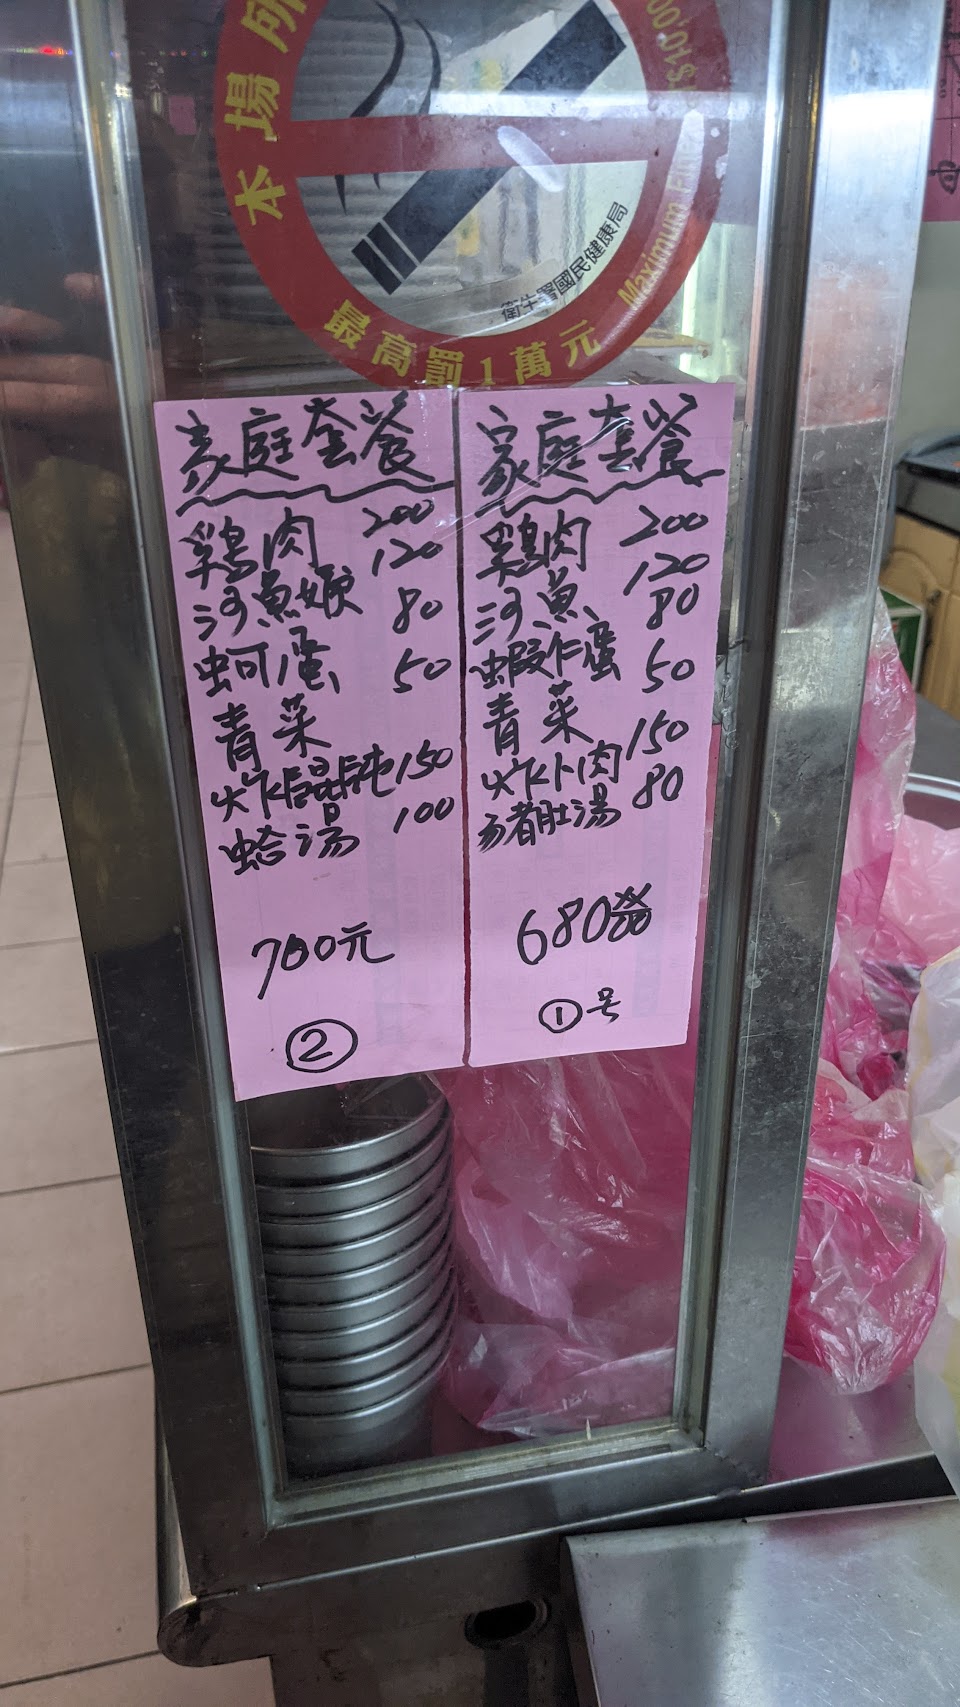 本場所
最高罰1萬元
Maximum Fine
衛生署國民健康局
家庭套餐
雞肉 200
沙魚嫂 120
蚵蛋 80
青菜 50
炸餛飩 150
蛤湯 100
700元
②
家庭套餐
雞肉 200
沙魚 120
蝦仁蛋 80
青菜 50
炸卜肉 150
豬肚湯 80
680
①号